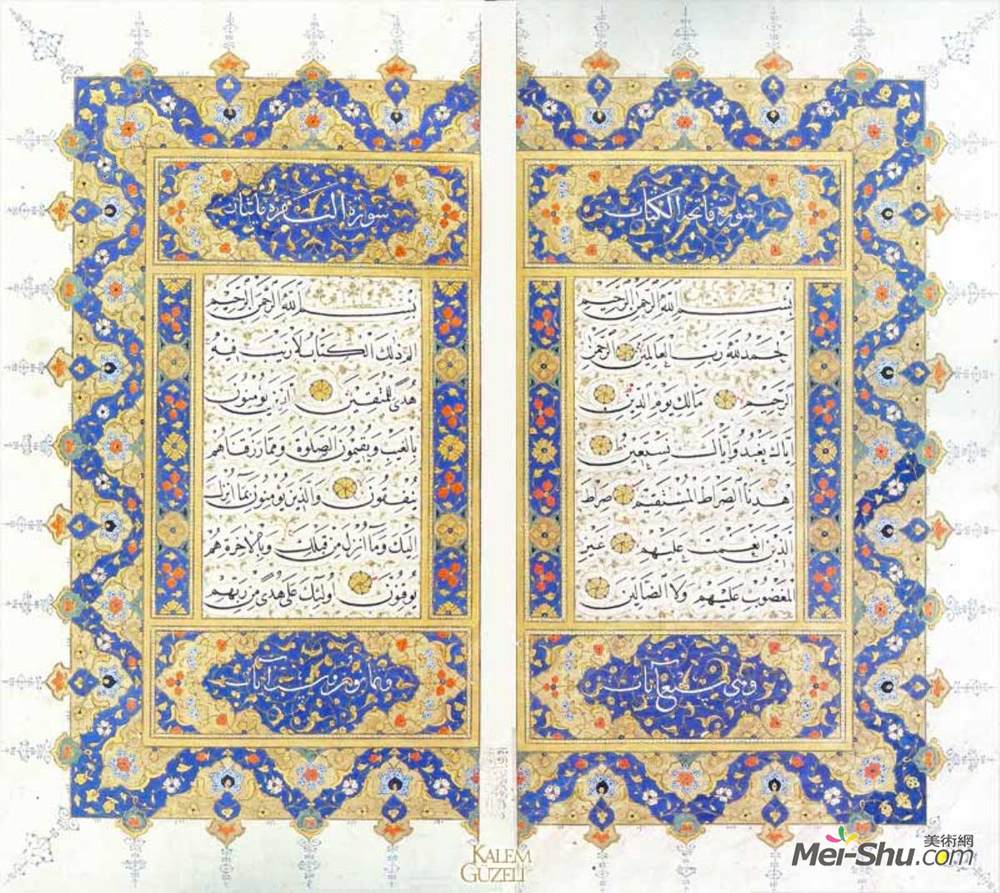 سورة فاتحة الكتاب
بسم الله الرحمن الرحيم
الحمد لله رب العالمين الرحمن
الرحيم مالك يوم الدين
اياك نعبد واياك نستعين
اهدنا الصراط المستقيم صراط
الذين انعمت عليهم غير
المغضوب عليهم ولا الضالين
وهي سبع آيات
سورة البقرة مائتان
بسم الله الرحمن الرحيم
الم ذلك الكتاب لا ريب فيه
هدى للمتقين الذين يؤمنون
بالغيب ويقيمون الصلوة ومما رزقناهم
ينفقون والذين يؤمنون بما انزل
اليك وما انزل من قبلك وبالاخرة هم
يوقنون اولئك على هدى من ربهم
وثمانون وست آيات
KALEM
GUZELI
美術網
Mei-Shu.com